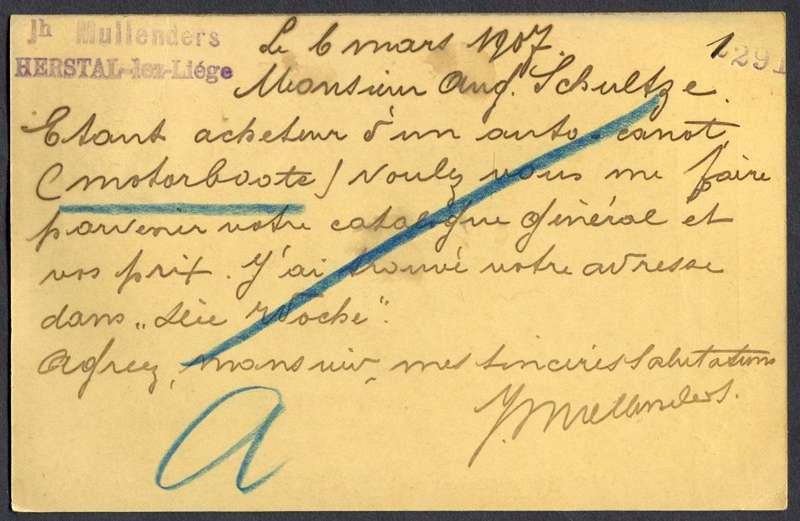 Jh Mullenders
HERSTAL-lez-Liége
1291
Le 6 mars 1907.
Monsieur Aug. Schultze.
Etant acheteur d'un auto-canot
(motorboote) voulez vous me faire
parvenir votre catalogue général et
vos prix. J'ai trouvé votre adresse
dans „Die Woche".
Agreez, monsieur, mes sincères salutations
J. Mullenders.
A